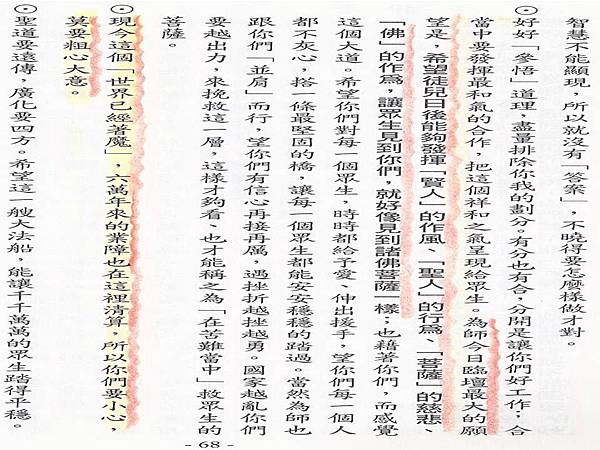 智慧不能顯現，所以就沒有「答案」，不曉得要怎麼樣做才對。
⊙好好「參悟」道理，盡量排除你我的劃分。有分也有合，分開是讓你們好工作，合
當中要發揮最和氣的合作，把這個祥和之氣呈現給眾生。為師今日臨壇最大的願
望是，希望徒兒日後能夠發揮「賢人」的作風、「聖人」的行為、「菩薩」的慈悲、
「佛」的作為，讓眾生見到你們，就好像見到諸佛菩薩一樣；也藉著你們，而感覺
這個大道。希望你們對每一個眾生，時時都給予愛、伸出援手，望你們每一個人
都不灰心，搭一條最堅固的橋，讓每一個眾生都能安安穩穩的踏過。當然為師也
跟你們「並肩」而行，望你們有信心再接再厲，遇挫折越挫越勇。國家越亂你們
要越出力，來挽救這一層，這樣才夠看、也才能稱之為「在苦難當中」救眾生的
菩薩。
⊙現今這個「世界已經著魔」，六萬年來的業障也在這裡清算，所以你們要小心，
莫要粗心大意。
⊙聖道要遠傳，廣化要四方。希望這一艘大法船，能讓千千萬萬的眾生踏得平穩。
- 68 -